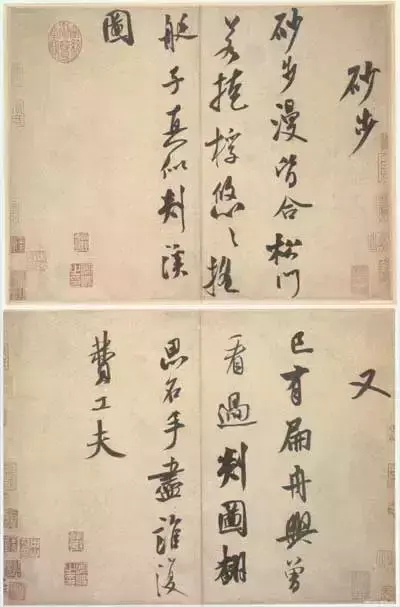 砂步
砂步漫皆合松門
若掩桴悠〻搖
艇子真似剡溪
圖
又
已有扁舟興曾
看過剡圖翻
思名手盡誰復
費工夫